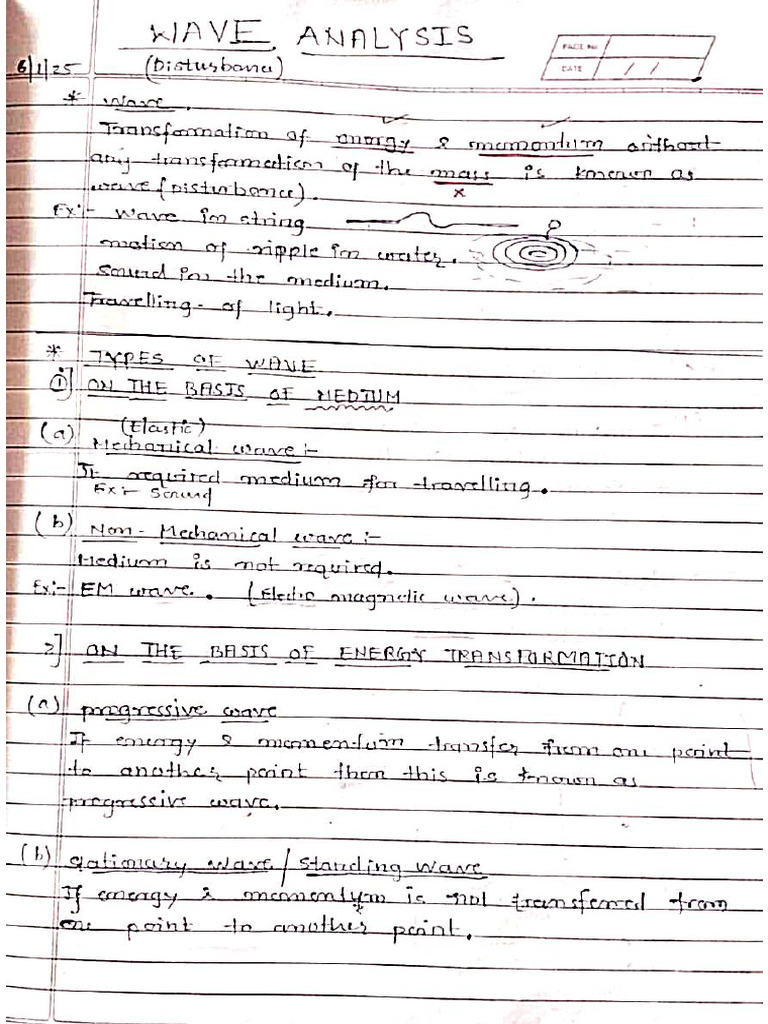 WAVE ANALYSIS
PAGE No.
DATE / /
6/1/25 (Disturbance)
* Wave.
Transformation of energy & momentum without
any transformation of the mass is known as
wave (Disturbance).
Ex:- Wave in string
motion of ripple in water.
Sound in the medium.
Travelling of light.
* TYPES OF WAVE
1] ON THE BASIS OF MEDIUM
(Elastic)
(a) Mechanical wave :-
It required medium for travelling.
Ex:- Sound
(b) Non-Mechanical wave :-
Medium is not required.
Ex:- EM wave. (Electro magnetic wave).
2] ON THE BASIS OF ENERGY TRANSFORMATION
(a) progressive wave
If energy & momentum transfer from one point
to another point then this is known as
progressive wave.
(b) stationary wave / standing wave
If energy & momentum is not transferred from
one point to another point.